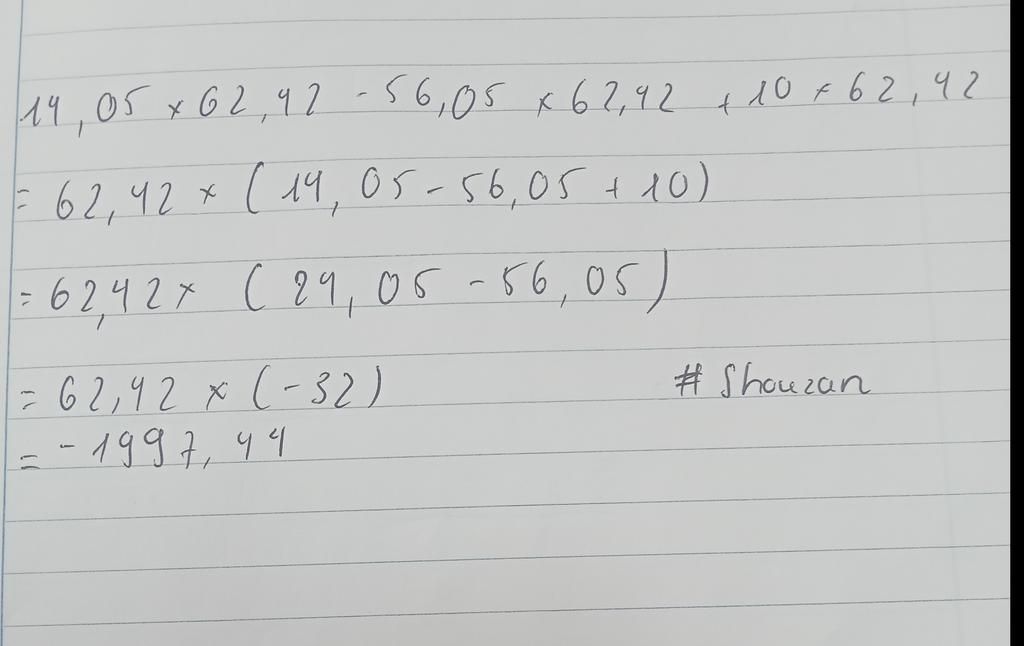 14,05 × 62,42 - 56,05 × 62,42 + 10 × 62,42
= 62,42 × (14,05 - 56,05 + 10)
= 62,42 × (24,05 - 56,05)
= 62,42 × (-32)
# Shouzan
= -1997,44